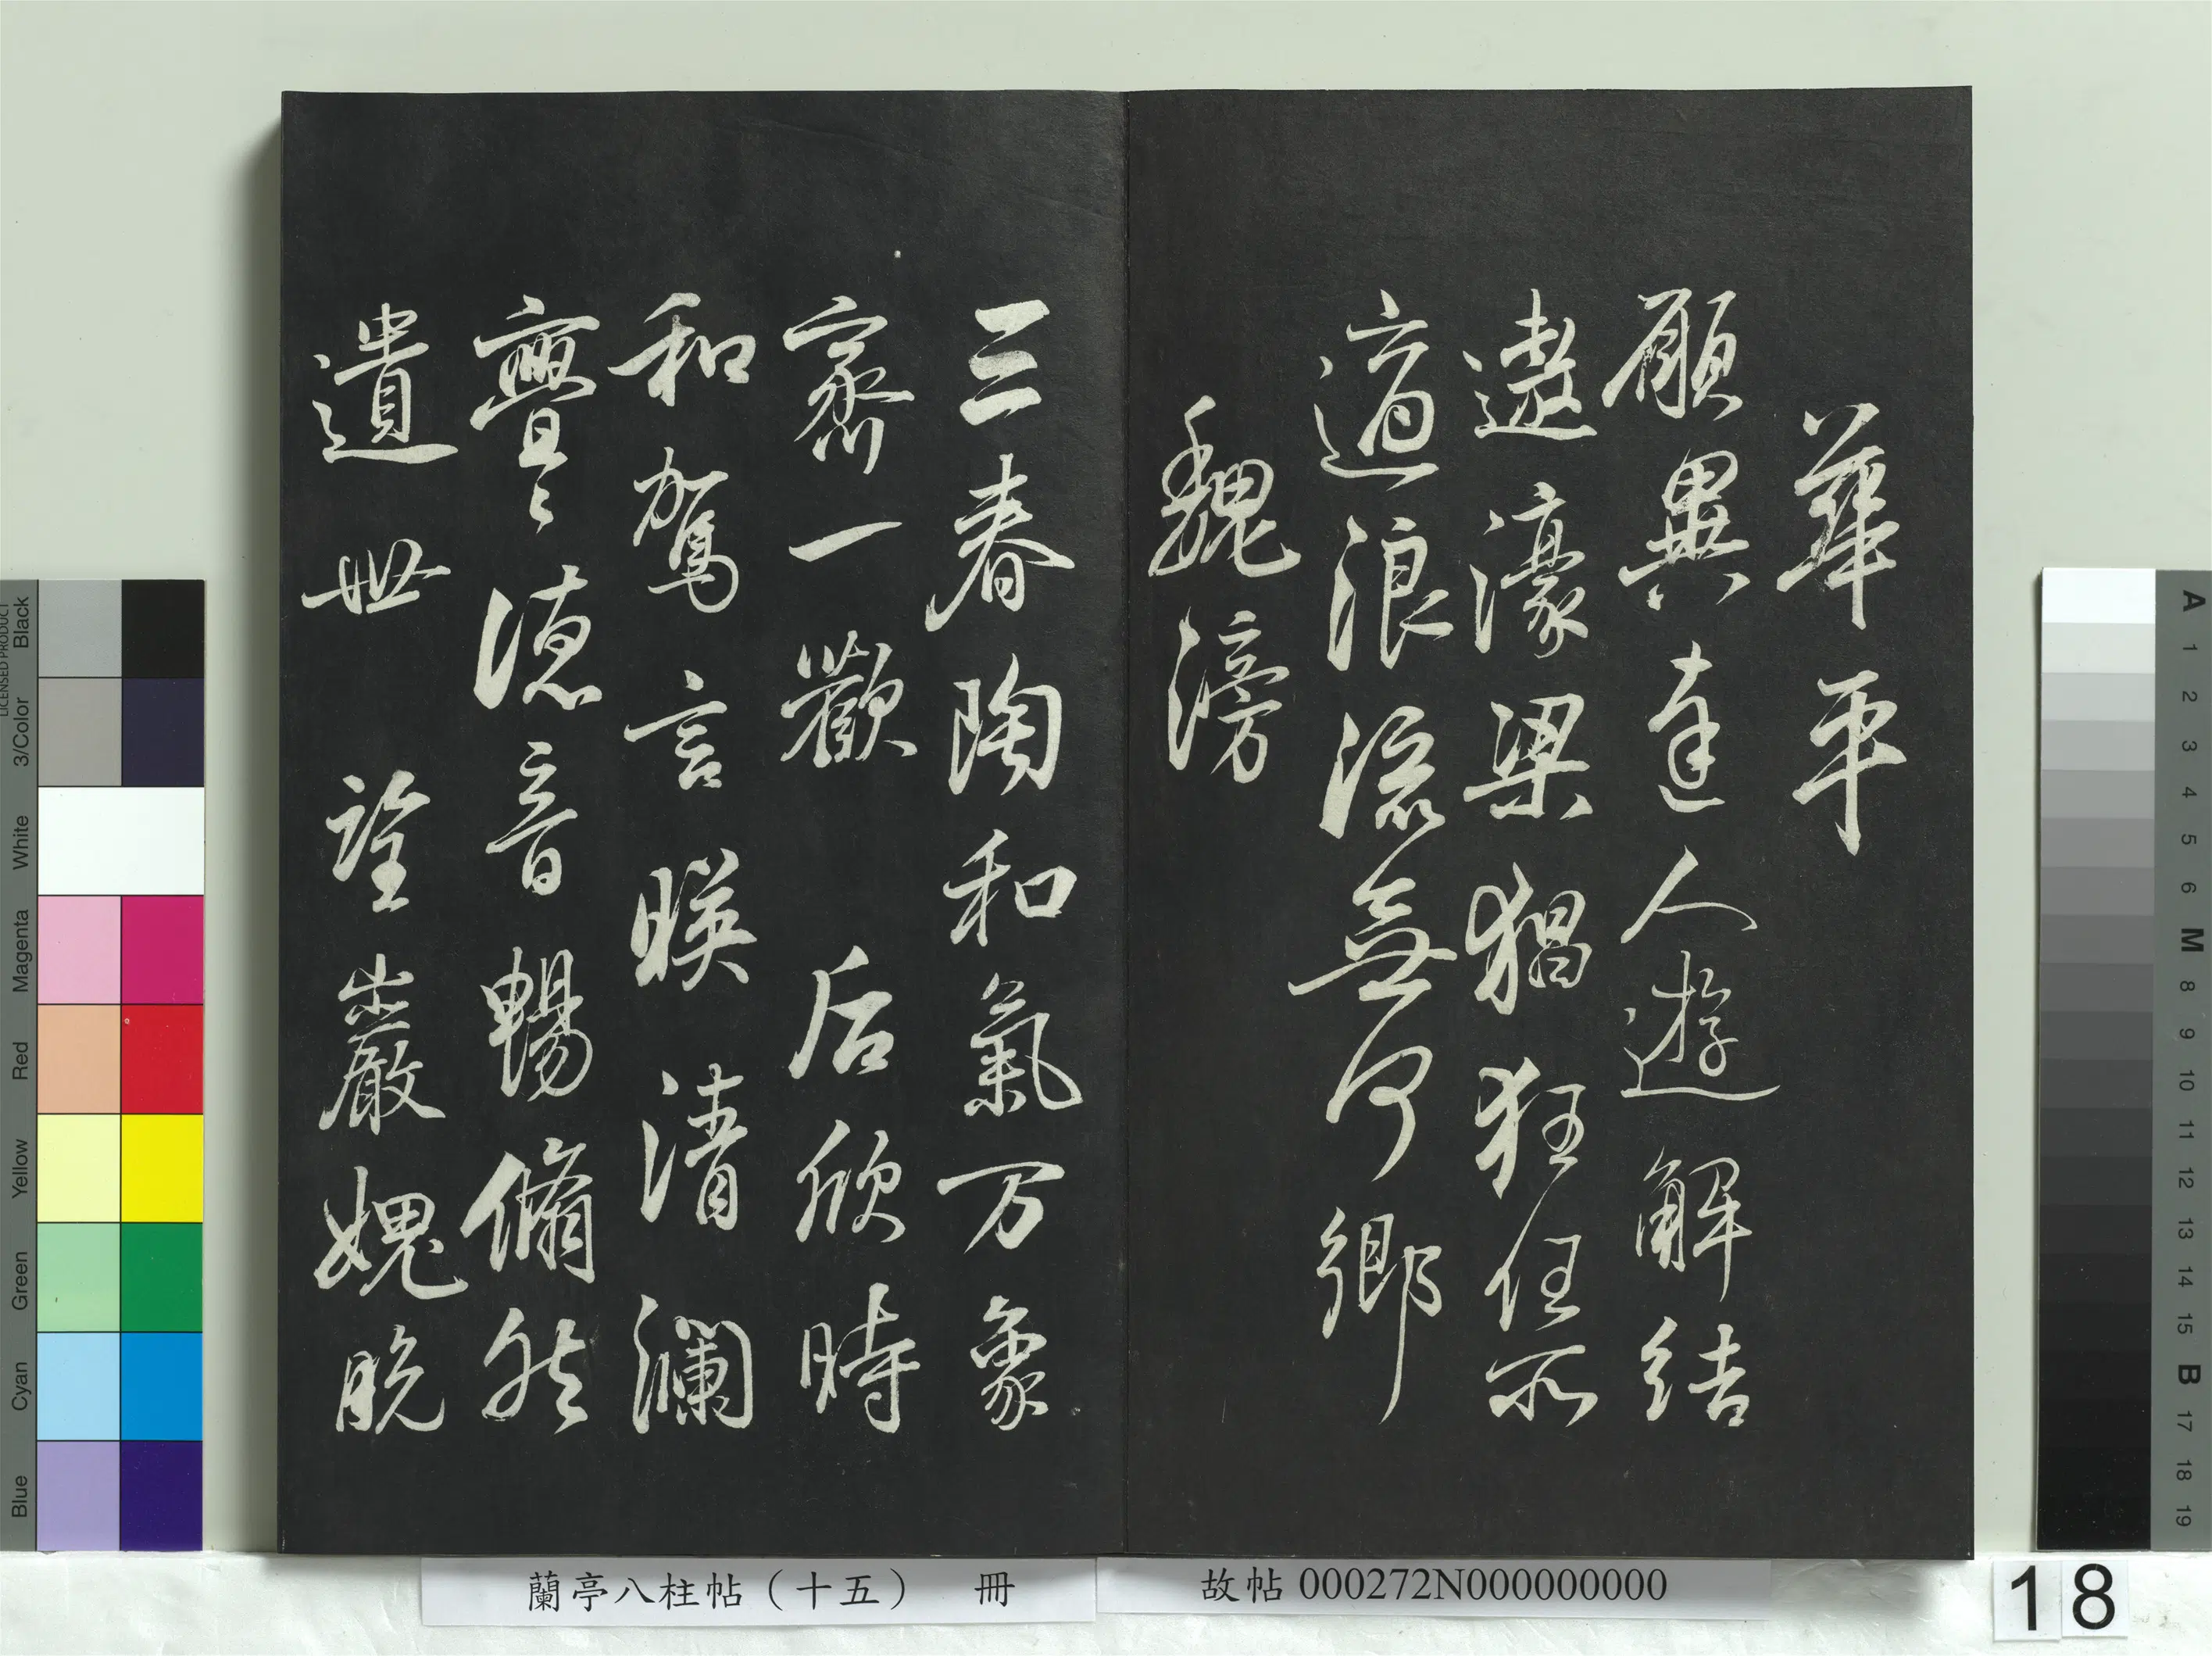 華平
願與達人遊解結
遨濠梁猖狂任所
適浪流無何鄉
魏滂
三春陶和氣万象
齊一歡 后欣時
和駕言暎清瀾
亹〻德音暢翛然
遺世 望巖媿脫
蘭亭八柱帖（十五） 冊
故帖 000272N000000000
18
LICENSED PRODUCT
Black
3/Color
White
Magenta
Red
Yellow
Green
Cyan
Blue
A
1
2
3
4
5
6
M
8
9
10
11
12
13
14
15
B
17
18
19